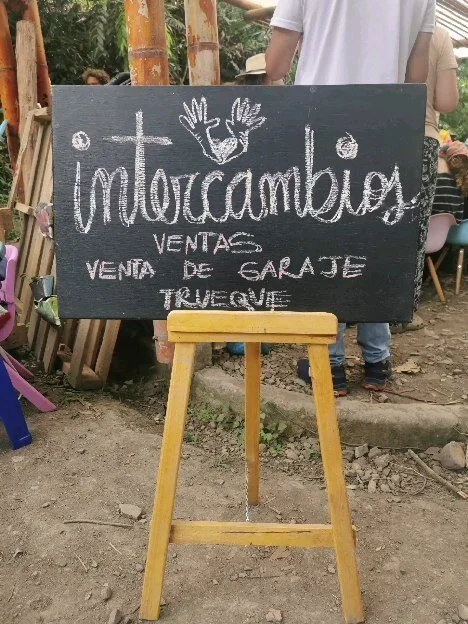 intercambios
VENTAS
VENTA DE GARAJE
TRUEQUE